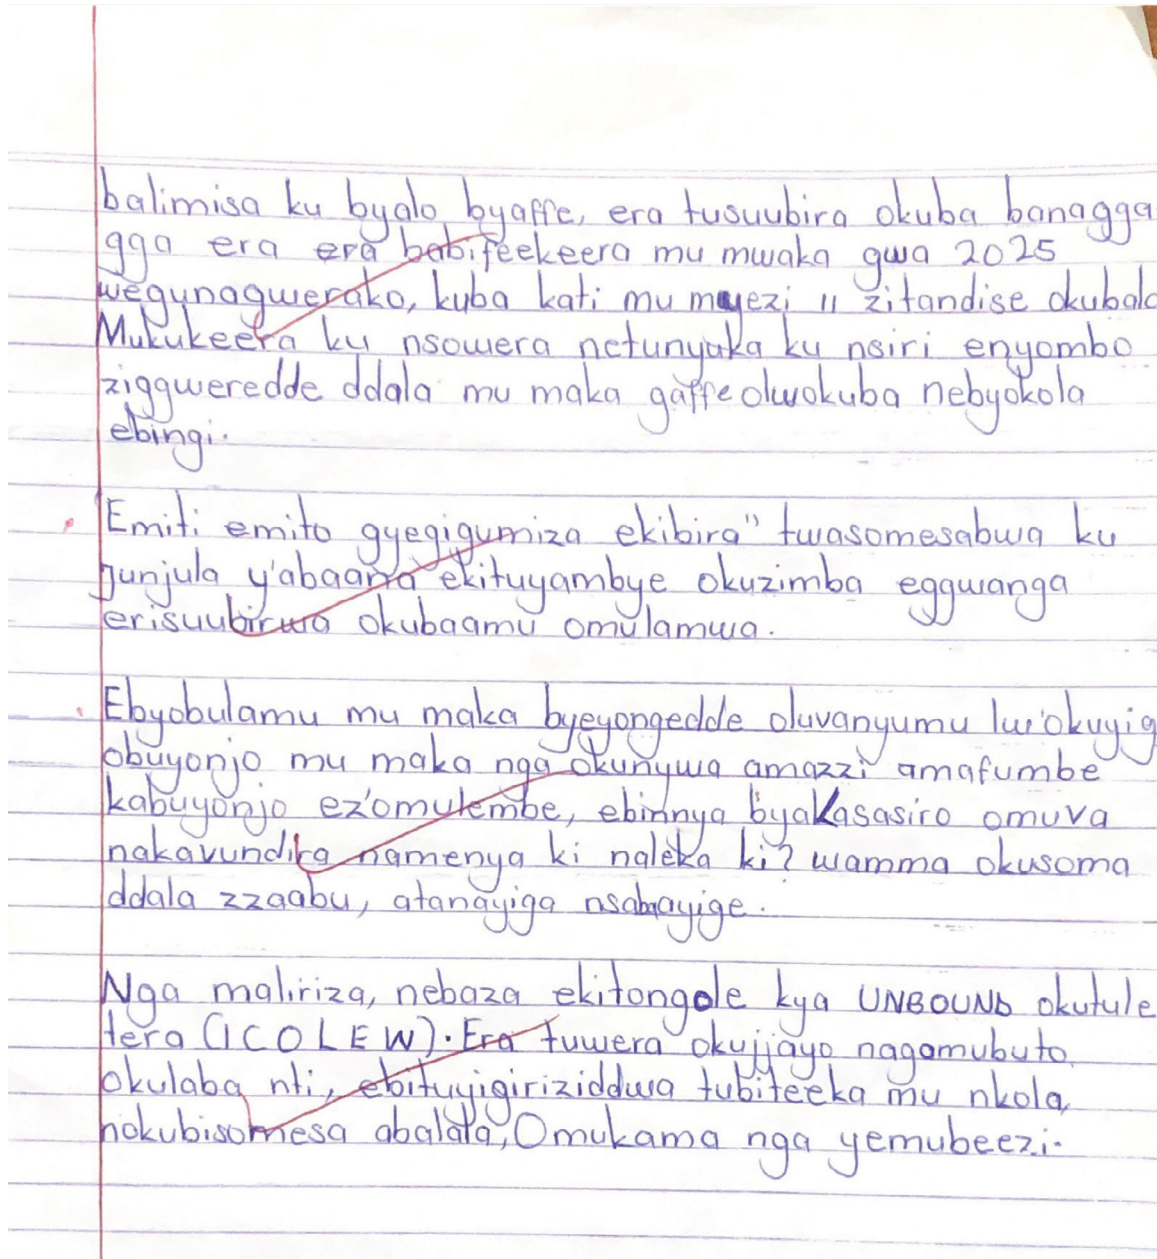 balimisa ku byalo byaffe, era tusuubira okuba banagga
gga era era babifeekeera mu mwaka gwa 2025
wegunagwerako, kuba kati mu myezi 11 zitandise okubala
Mukukeera ku nsowera netunyuka ku nsiri enyombo
ziggweredde ddala mu maka gaffe olwokuba nebyokola
ebingi.
Emiti emito gyegigumiza ekibira" twasomesabwa ku
Junjula y'abaana ekituyambye okuzimba eggwanga
erisuubirwa okubaamu omulamwa.
Ebyobulamu mu maka byeyongedde oluvanyumu lw'okuyig
obuyonjo mu maka nga okunywa amazzi amafumbe
kabuyonjo ez'omulembe, ebinnya byakasasiro omuva
nakavundira namenya ki naleka ki? wamma okusoma
ddala zzaabu, atanayiga nsabaayige.
Nga maliriza, nebaza ekitongole kya UNBOUND okutule
tera (ICOLEW). Era tuwera okujjayo nagomubuto
okulaba nti, ebituyigiriziddwa tubiteeka mu nkola,
nokubisomesa abalala, Omukama nga yemubeezi.